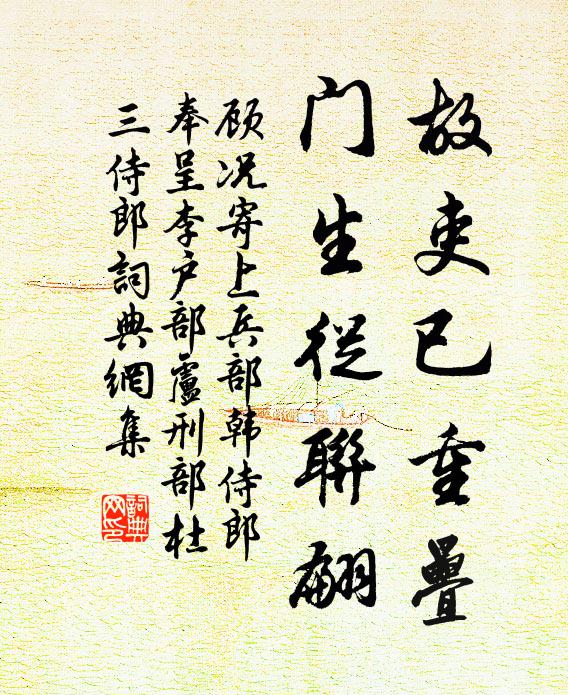 故吏已重疊
门生從聯翩
顾况寄上兵部韩侍郎
奉呈李户部盧刑部杜
三侍郎詞典網集
詞典
网印